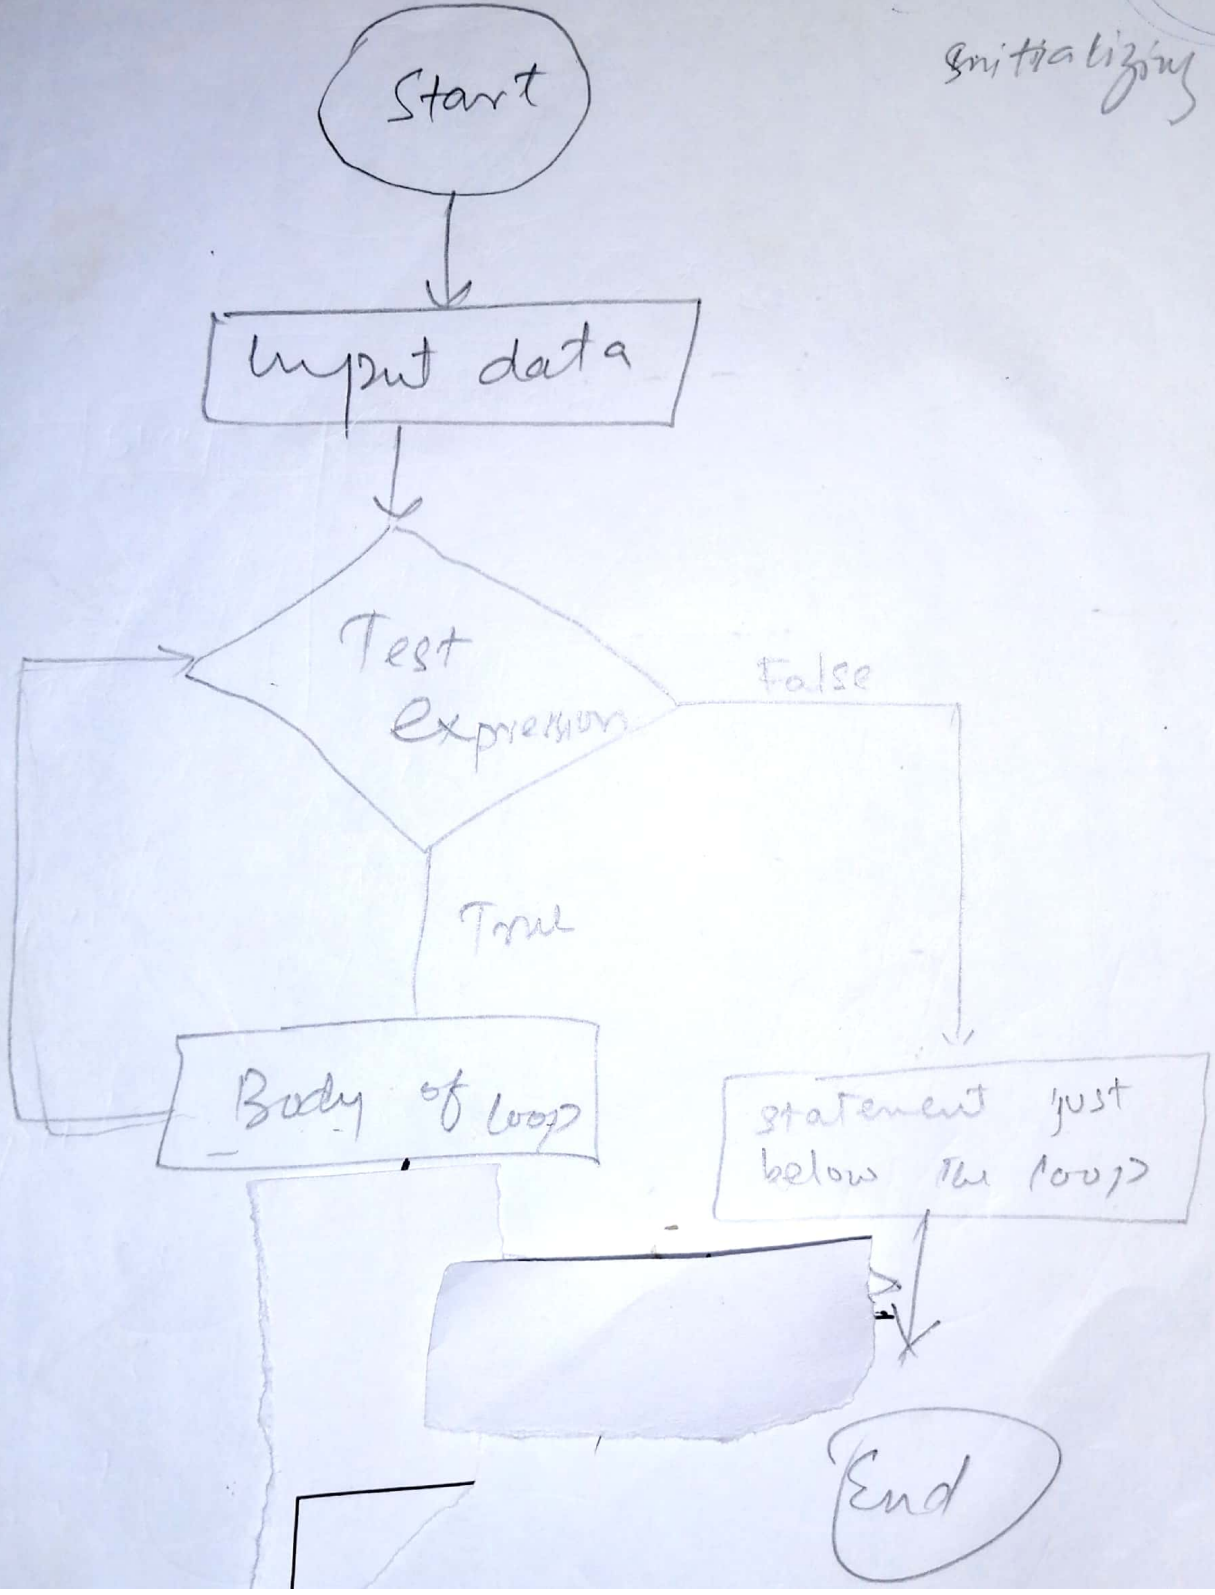 Initializing
Start
Input data
Test
expression
False
True
Body of loop
statement just
below the loop
End